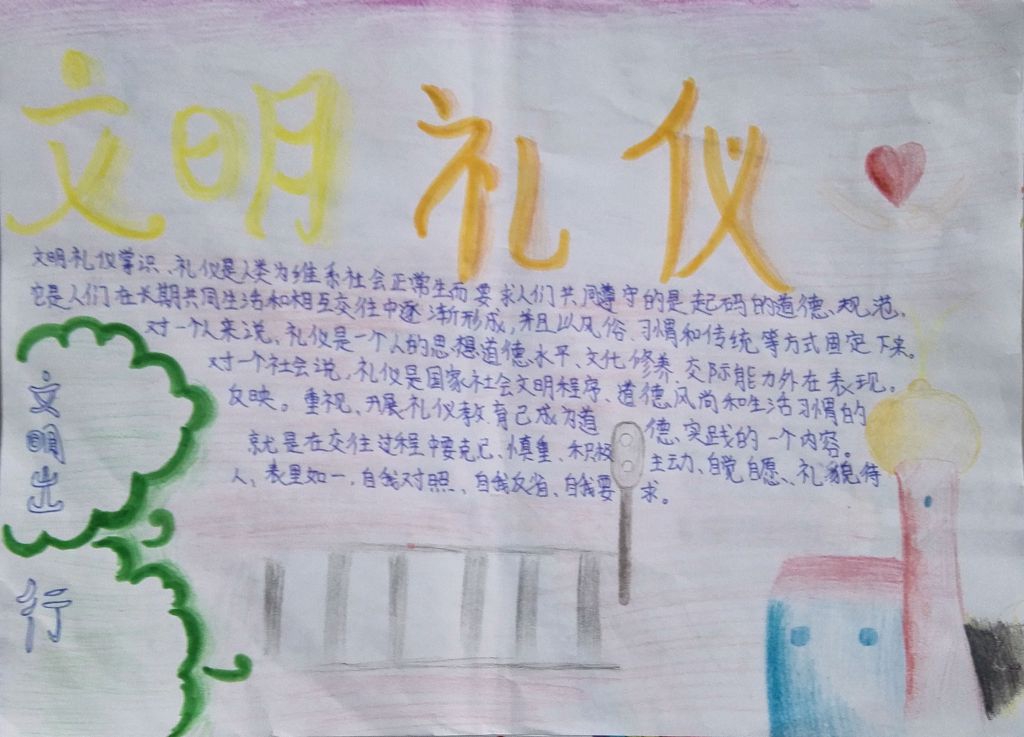 文明礼仪
文明礼仪常识、礼仪是人类为维系社会正常生而要求人们共同遵守的是起码的道德、规范,
它是人们在长期共同生活和相互交往中逐渐形成,并且以风俗、习惯和传统等方式固定下来。
对一个人来说,礼仪是一个人的思想道德水平、文化修养、交际能力外在表现。
对一个社会说,礼仪是国家社会文明程序、道德风尚和生活习惯的
反映。重视、开展礼仪教育已成为道德、实践的一个内容。
就是在交往过程中要克己、慎重、积极主动、自觉自愿、礼貌待
人,表里如一,自我对照、自我反省、自我要求。
文明出
行